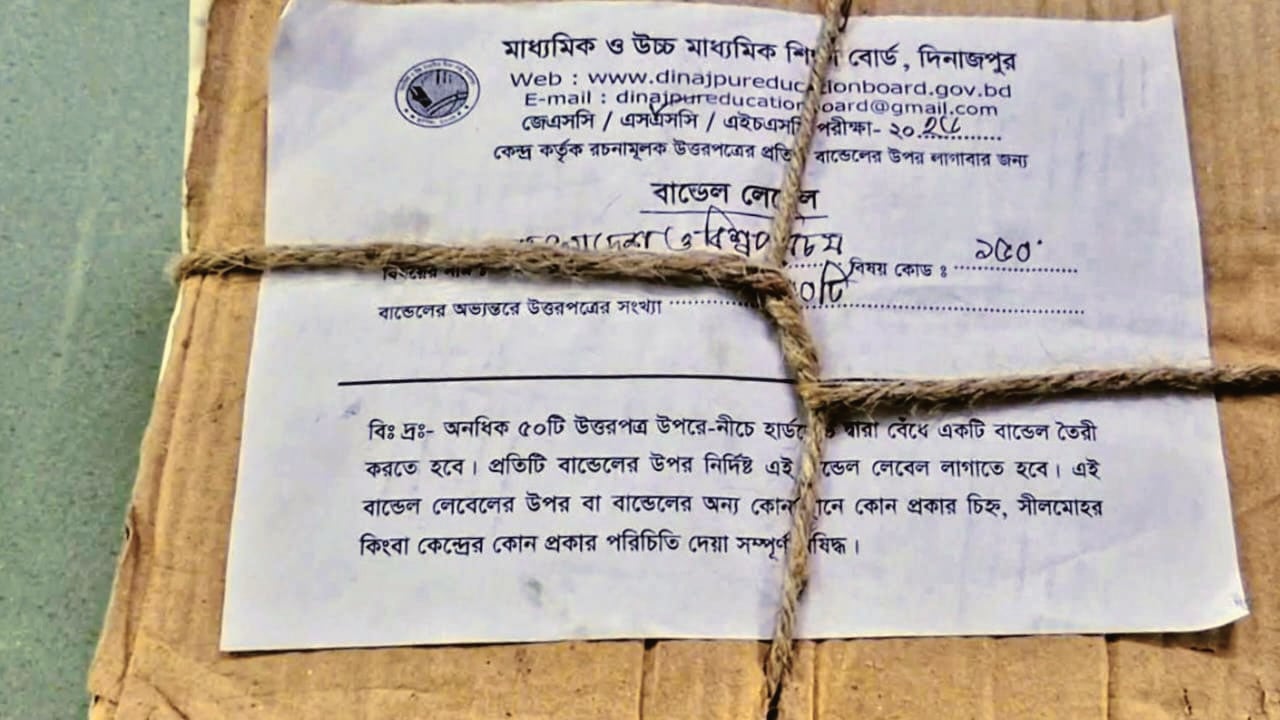 মাধ্যমিক ও উচ্চ মাধ্যমিক বোর্ড, দিনাজপুর
Web : www.dinajpureducationboard.gov.bd
E-mail : dinajpureducationboard@gmail.com
জেএসসি / এসএসসি / এইচএসসি পরীক্ষা- ২০
কেন্দ্র কর্তৃক রচনামূলক উত্তরপত্রের প্রতি বান্ডেলের উপর লাগাবার জন্য
বান্ডেল লেবেল
ও বিশ্বপরিচয় বিষয় কোড : ১৫০
বান্ডেলের অভ্যন্তরে উত্তরপত্রের সংখ্যা
বিঃ দ্রঃ- অনধিক ৫০টি উত্তরপত্র উপরে-নীচে দ্বারা বেঁধে একটি বান্ডেল তৈরী
করতে হবে। প্রতিটি বান্ডেলের উপর নির্দিষ্ট এই বান্ডেল লেবেল লাগাতে হবে। এই
বান্ডেল লেবেলের উপর বা বান্ডেলের অন্য কোন কোন প্রকার চিহ্ন, সীলমোহর
কিংবা কেন্দ্রের কোন প্রকার পরিচিতি দেয়া সম্পূর্ণ নিষিদ্ধ।